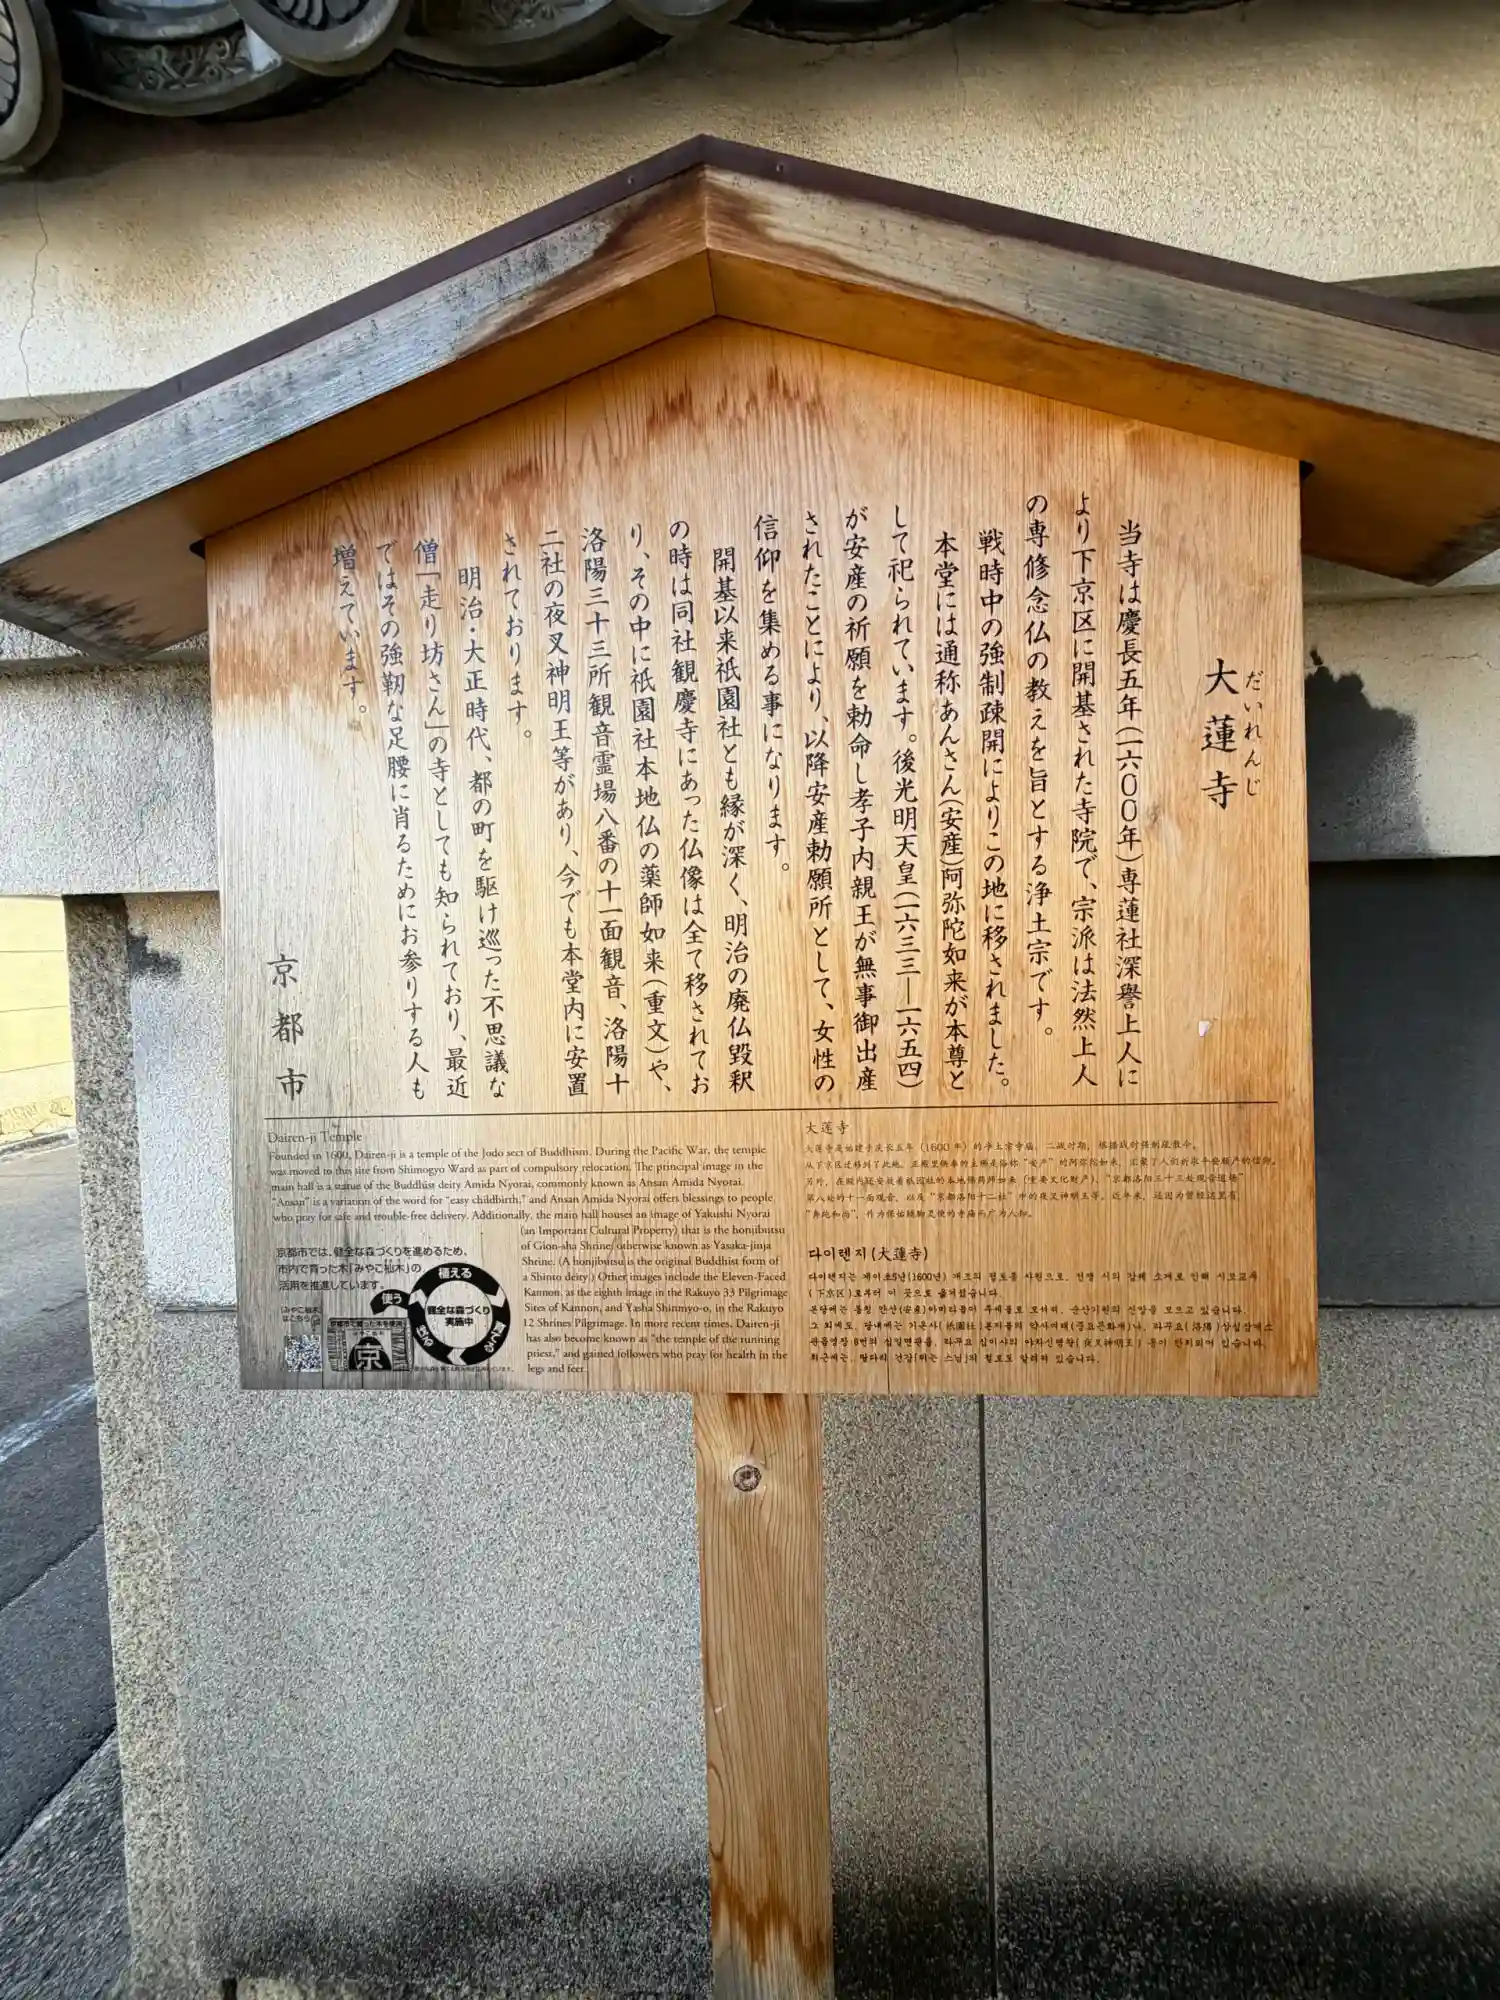 大蓮寺
だいれんじ
当寺は慶長五年(一六〇〇年)専蓮社深誉上人に
より下京区に開基された寺院で、宗派は法然上人
の専修念仏の教えを旨とする浄土宗です。
戦時中の強制疎開によりこの地に移されました。
本堂には通称あんさん(安産)阿弥陀如来が本尊と
して祀られています。後光明天皇(一六三三―一六五四)
が安産の祈願を勅命し孝子内親王が無事御出産
されたことにより、以降安産勅願所として、女性の
信仰を集める事になります。
開基以来祇園社とも縁が深く、明治の廃仏毀釈
の時は同社観慶寺にあった仏像は全て移されてお
り、その中に祇園社本地仏の薬師如来(重文)や、
洛陽三十三所観音霊場八番の十一面観音、洛陽十
二社の夜叉神明王等があり、今でも本堂内に安置
されております。
明治・大正時代、都の町を駆け巡った不思議な
僧「走り坊さん」の寺としても知られており、最近
ではその強靭な足腰に肖るためにお参りする人も
増えています。
京都市
Dairen-ji Temple
Founded in 1600, Dairen-ji is a temple of the Jodo sect of Buddhism. During the Pacific War, the temple
was moved to this site from Shimogyo Ward as part of compulsory relocation. The principal image in the
main hall is a statue of the Buddhist deity Amida Nyorai, commonly known as Ansan Amida Nyorai.
"Ansan" is a variation of the word for "easy childbirth," and Ansan Amida Nyorai offers blessings to people
who pray for safe and trouble-free delivery. Additionally, the main hall houses an image of Yakushi Nyorai
(an Important Cultural Property) that is the honjibutsu
of Gion-sha Shrine, otherwise known as Yasaka-jinja
Shrine. (A honjibutsu is the original Buddhist form of
a Shinto deity.) Other images include the Eleven-Faced
Kannon, as the eighth image in the Rakuyo 33 Pilgrimage
Sites of Kannon, and Yasha Shinmyo-o, in the Rakuyo
12 Shrines Pilgrimage. In more recent times, Dairen-ji
has also become known as "the temple of the running
priest," and gained followers who pray for health in the
legs and feet.
京都市では、健全な森づくりを進めるため、
市内で育った木「みやこ杣木」の
活用を推進しています。
みやこ杣木
はこちら
植える
使う
健全な森づくり
実施中
京都市で育った木を使用
京
大蓮寺
大莲寺是始建于庆长五年(1600年)的净土宗寺庙。二战时期,根据战时强制疏散令,
从下京区迁移到了此地。正殿里供奉的主佛是俗称"安产"的阿弥陀如来,汇聚了人们祈求平安顺产的信仰。
另外,在殿内还安放着祇园社的本地佛药师如来(重要文化财产)、"京都洛阳三十三处观音道场"
第八处的十一面观音,以及"京都洛阳十二社"中的夜叉神明王等。近年来,还因为曾经这里有
"奔跑和尚",作为保佑腰脚足便的寺庙而广为人知。
다이렌지(大蓮寺)
다이렌지는 게이초5년(1600년) 개조의 정토종 사원으로, 전쟁 시의 강제 소개로 인해 시모교구
(下京区)로부터 이 곳으로 옮겨졌습니다.
본당에는 통칭 안산(安産)아미타불이 주세불로 모셔져, 순산기원의 신앙을 모으고 있습니다.
그 외에도, 당내에는 기온사(祇園社)본지불의 약사여래(중요문화재)나, 라쿠요(洛陽)삼십삼개소
관음영장 8번의 십일면관음, 라쿠요 십이사의 야차신명왕(夜叉神明王) 등이 안치되어 있습니다.
최근에는, 팔다리 건강[뛰는 스님]의 절로도 알려져 있습니다.